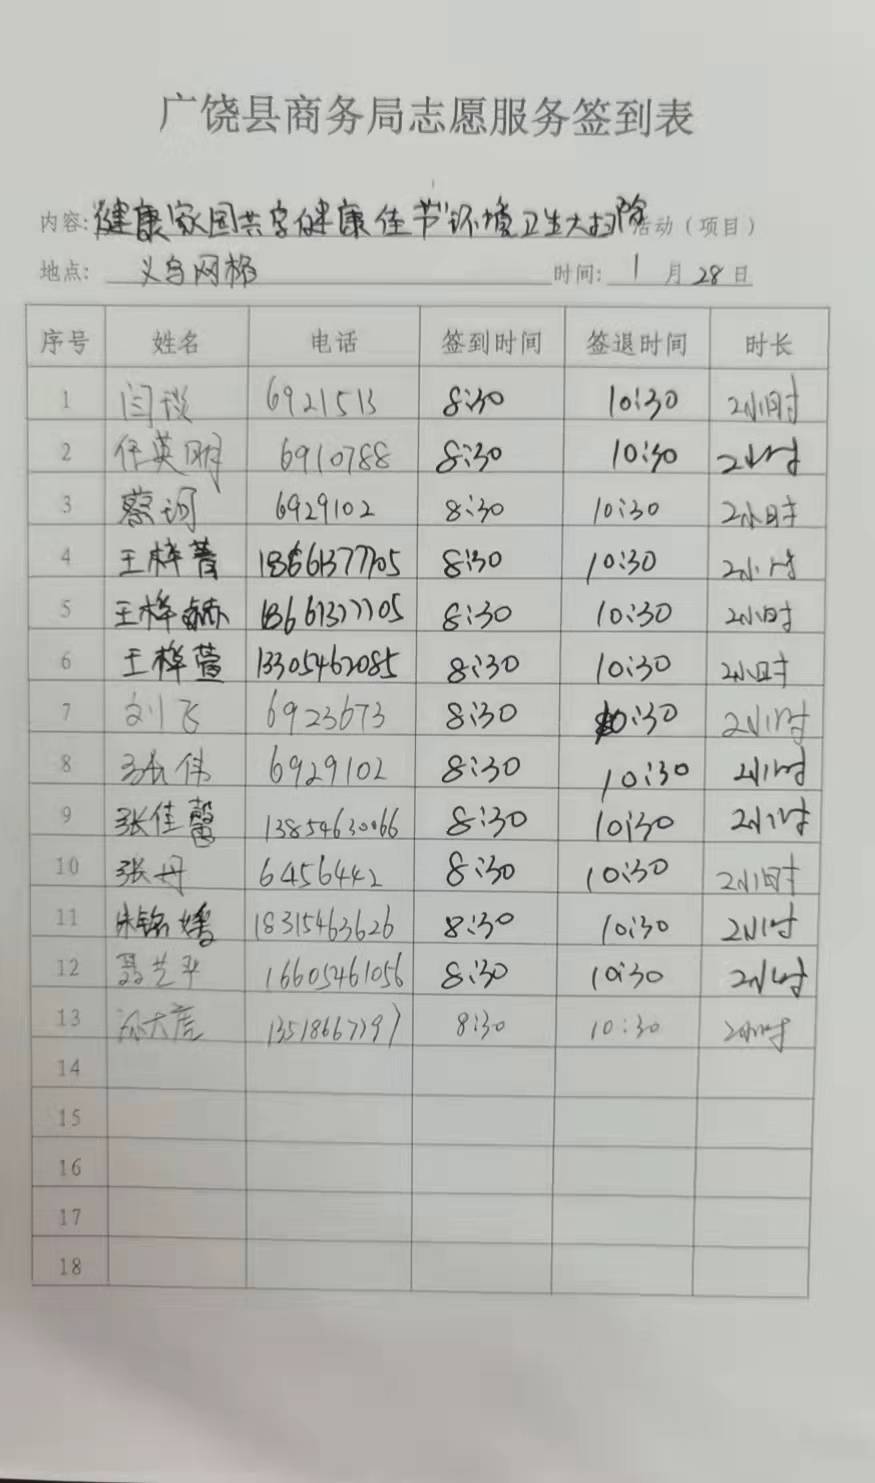 广饶县商务局志愿服务签到表
内容:"健康家园共享健康佳节"环境卫生大扫除活动(项目)
地点: 义乌网格 时间: 1月28日
序号 姓名 电话 签到时间 签退时间 时长
1 闫谈 6921513 8:30 10:30 2小时
2 任英明 6910788 8:30 10:30 2小时
3 蔡河 6929102 8:30 10:30 2小时
4 王梓菁 18661377705 8:30 10:30 2小时
5 王梓赫 18661377705 8:30 10:30 2小时
6 王梓萱 13305462085 8:30 10:30 2小时
7 刘飞 6923673 8:30 10:30 2小时
8 张伟 6929102 8:30 10:30 2小时
9 张佳馨 13854630066 8:30 10:30 2小时
10 张丹 6456442 8:30 10:30 2小时
11 朱铭 18315463626 8:30 10:30 2小时
12 聂兰平 16605461056 8:30 10:30 2小时
13 8:30 10:30 2小时
14
15
16
17
18